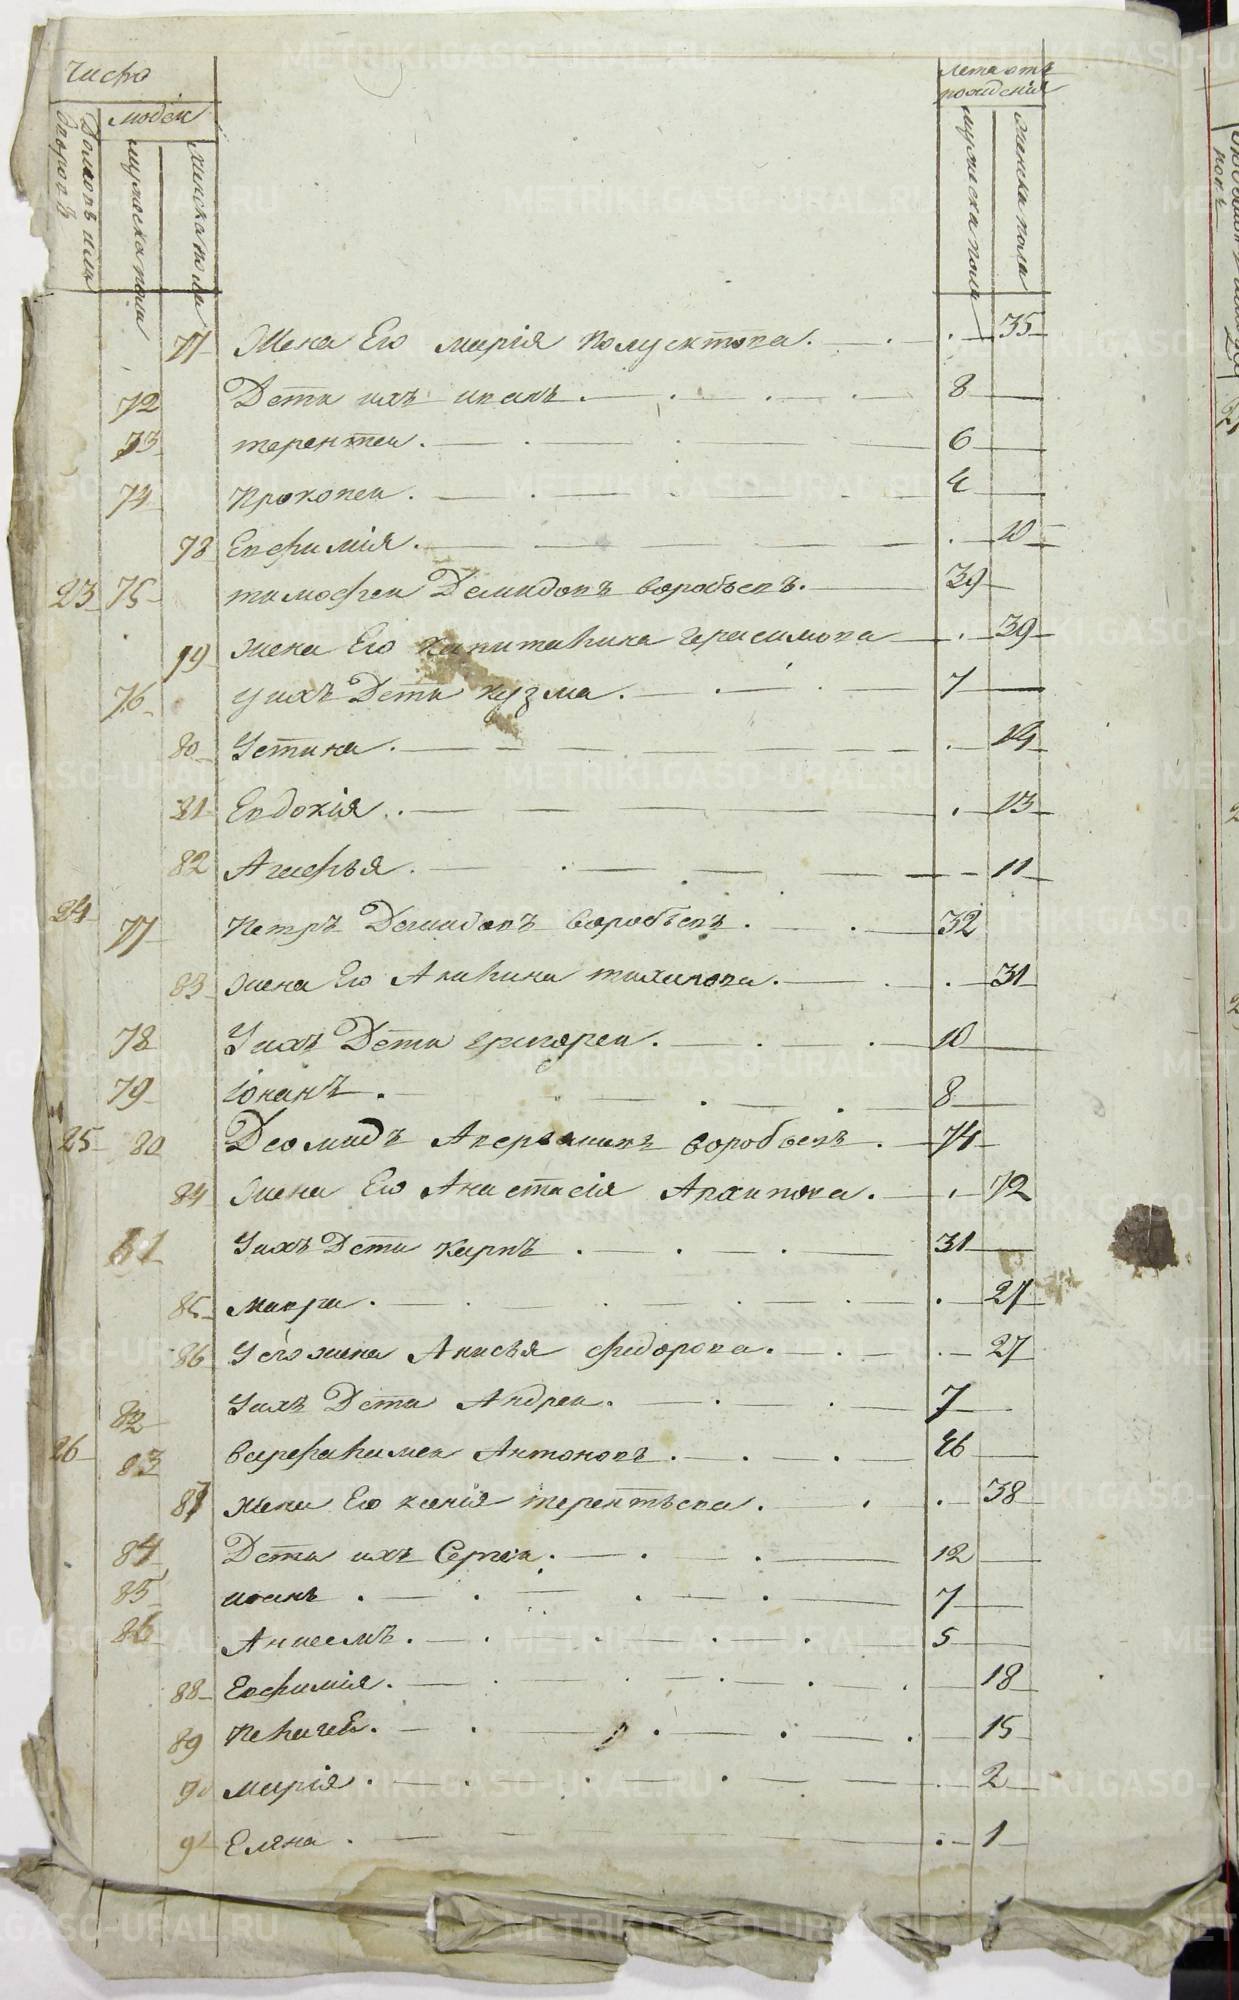 Число
людей
Домовъ или дворовъ
мужеска пола
женска пола
лета отъ рождения
мужеска пола
женска пола
77 Жена Его марія Полуектова. 35
72 Дети ихъ иванъ. 8
73 терентеи. 6
74 Прокопеи. 4
78 Евфимія. 10
23 75 тимофеи Демидовъ воробьевъ. 39
79 жена Его Капиталина герасимова 39
76 у ихъ Дети кузма. 7
80 Устина. 14
81 Евдокія. 13
82 Агафья. 11
24 77 Петръ Демидовъ воробьевъ. 32
83 жена Его Акилина тихинова. 31
78 У ихъ Дети григореи. 10
79 іованъ. 8
25 80 Деомидъ Аверьяновъ воробьевъ. 74
84 жена Его Анастасія Архипова. 72
81 У ихъ Дети Карпъ. 31
85 мавра. 27
86 У его жена Анисья федорова. 27
82 У ихъ Дети Андреи. 7
26 83 варфаламеи Антоновъ. 46
87 жена Его ксенія терентьева. 38
84 Дети ихъ Сергеи. 12
85 иванъ. 7
86 Анисемъ. 5
88 Еофимія. 18
89 Пелагея. 15
90 марія. 2
91 Елена. 1
METRIKI.GASO-URAL.RU